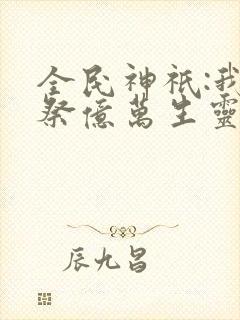 全民神祇:我
祭億萬生靈
辰九昌